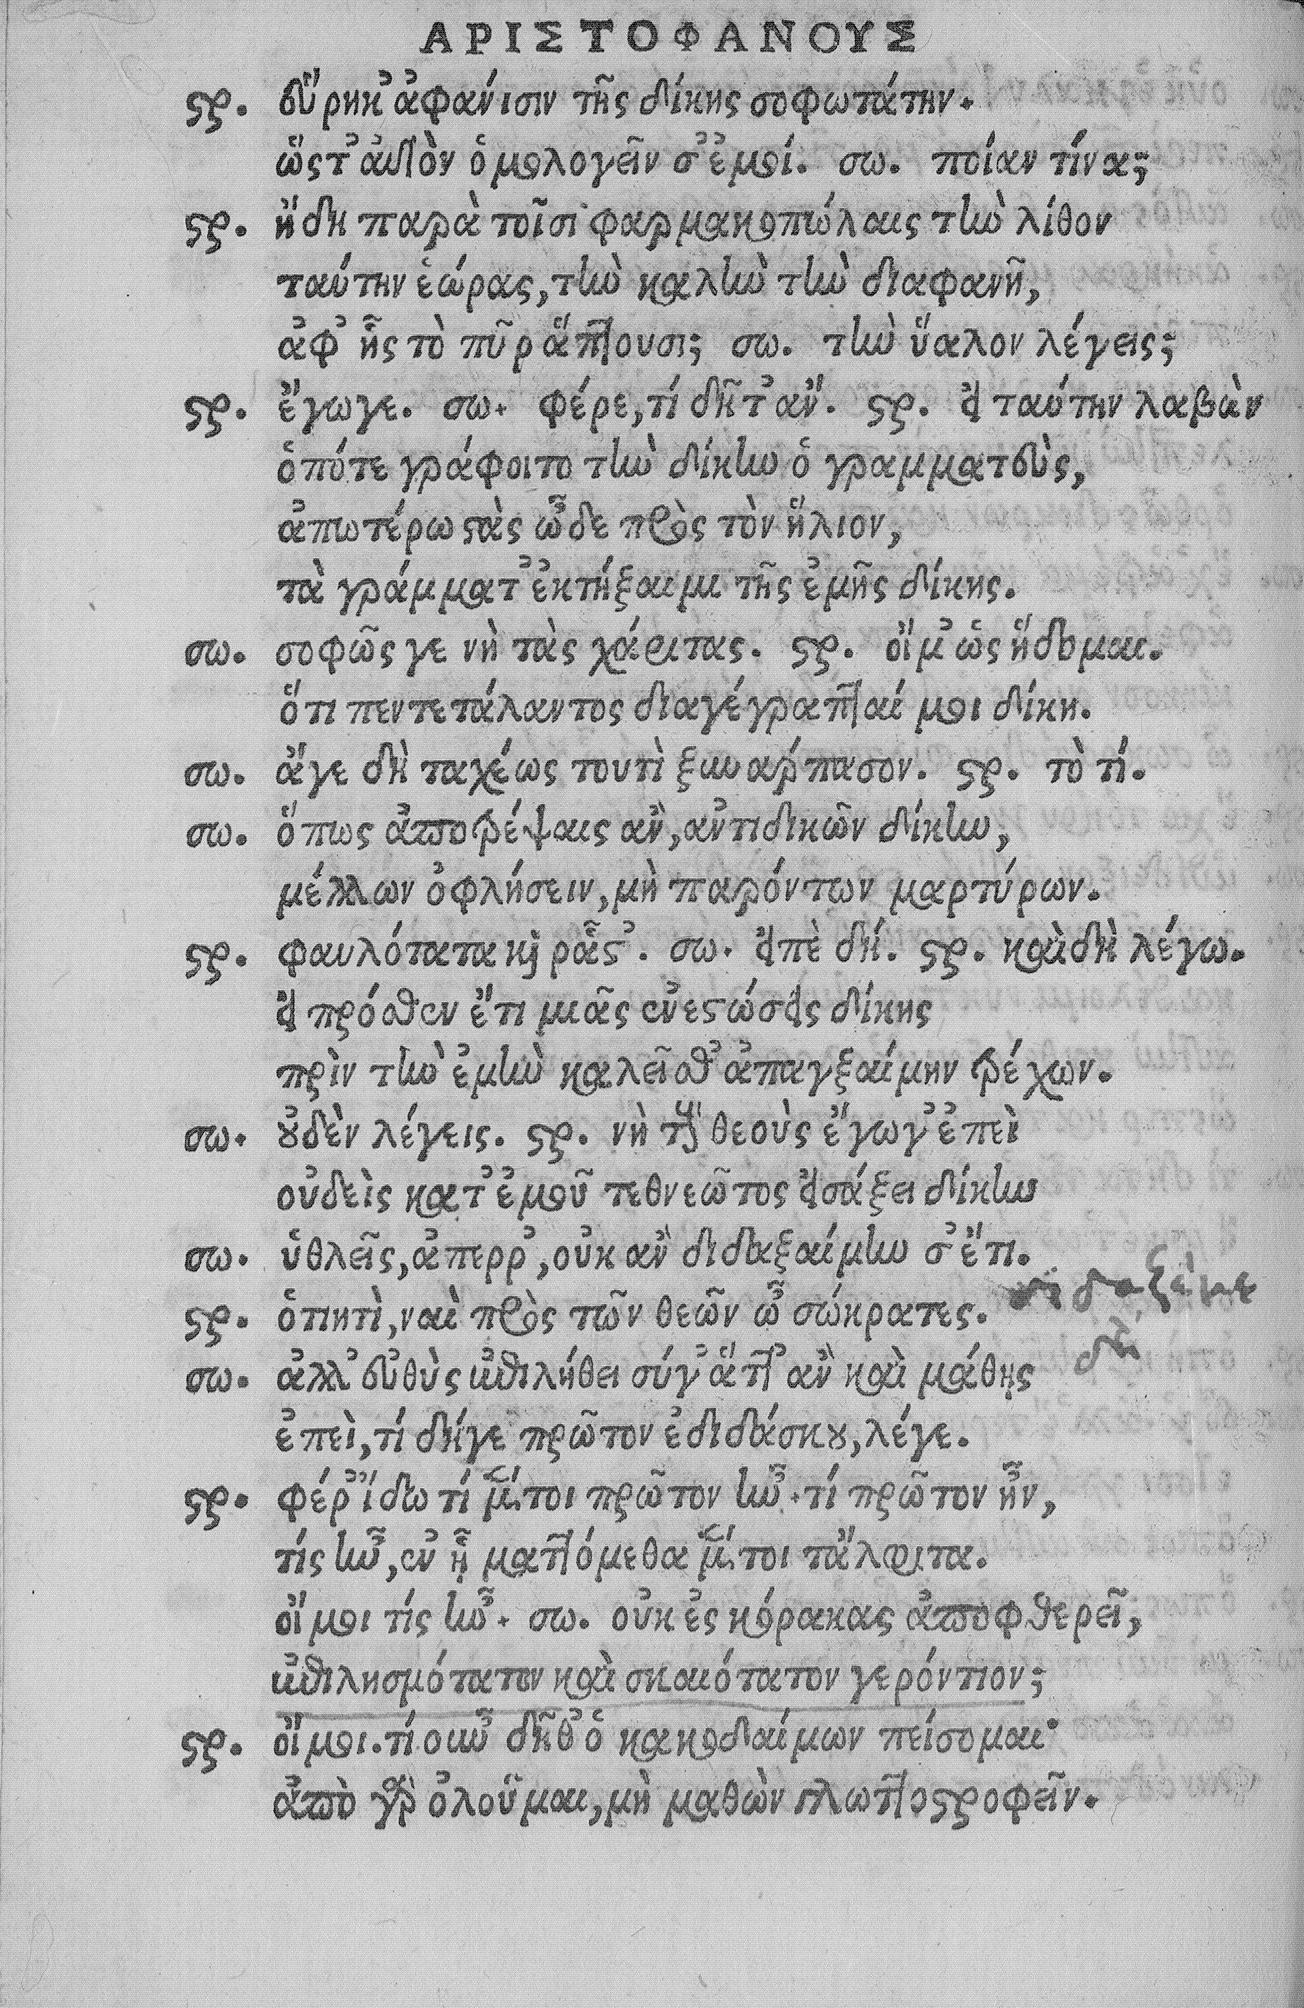 ΑΡΙΣΤΟΦΑΝΟΥΣ
στρ. εὕρηκ' ἀφάνισιν τῆς δίκης σοφωτάτην.
ὥστ' αὐτὸν ὁμολογεῖν σ' ἐμοί. σω. ποίαν τίνα;
στρ. ἤδη παρὰ τοῖσι φαρμακοπώλαις τὴν λίθον
ταύτην ἑώρας, τὴν καλὴν τὴν διαφανῆ,
ἀφ' ἧς τὸ πῦρ ἅπτουσι; σω. τὴν ὕαλον λέγεις;
στρ. ἔγωγε. σω. φέρε, τί δῆτ' ἄν. στρ. εἰ ταύτην λαβὼν
ὁπότε γράφοιτο τὴν δίκην ὁ γραμματεὺς,
ἀπωτέρω στὰς ὧδε πρὸς τὸν ἥλιον,
τὰ γράμματ' ἐκτήξαιμι τῆς ἐμῆς δίκης.
σω. σοφῶς γε νὴ τὰς χάριτας. στρ. οἴμ' ὡς ἥδομαι.
ὅτι πεντετάλαντος διαγέγραπταί μοι δίκη.
σω. ἄγε δὴ ταχέως τουτὶ ξυνάρπασον. στρ. τὸ τί.
σω. ὅπως ἀποτρέψαις ἂν, ἀντιδικῶν δίκην,
μέλλων ὀφλήσειν, μὴ παρόντων μαρτύρων.
στρ. φαυλότατα καὶ ρᾷστ'. σω. εἰπὲ δή. στρ. καὶ δὴ λέγω.
εἰ πρόσθεν ἔτι μιᾶς ἐνεστώσης δίκης
πρὶν τὴν ἐμὴν καλεῖσθ' ἀπαγξαίμην τρέχων.
σω. οὐδὲν λέγεις. στρ. νὴ τοὺς θεοὺς ἔγωγ' ἐπεὶ
οὐδεὶς κατ' ἐμοῦ τεθνεῶτος εἰσάξει δίκην
σω. ὑθλεῖς, ἄπερρ', οὐκ ἂν διδαξαίμην σ' ἔτι.
στρ. ὁτιητὶ, ναὶ πρὸς τῶν θεῶν ὦ σώκρατες.
σω. ἀλλ' εὐθὺς ἐπιλήθει σύγ' ἅττ' ἂν καὶ μάθῃς
ἐπεὶ, τί δήγε πρῶτον ἐδιδάσκου, λέγε.
στρ. φέρ' ἴδω τί μέντοι πρῶτον ἦν. τί πρῶτον ἦν,
τίς ἦν, ἐν ᾗ ματτόμεθα μέντοι τἄλφιτα.
οἴμοι τίς ἦν. σω. οὐκ ἐς κόρακας ἀποφθερεῖ,
ἐπιλησμότατον καὶ σκαιότατον γερόντιον;
στρ. οἴμοι. τί οὖν δῆθ' ὁ κακοδαίμων πείσομαι·
ἀπὸ γὰρ ὀλοῦμαι, μὴ μαθὼν γλωττοστροφεῖν.